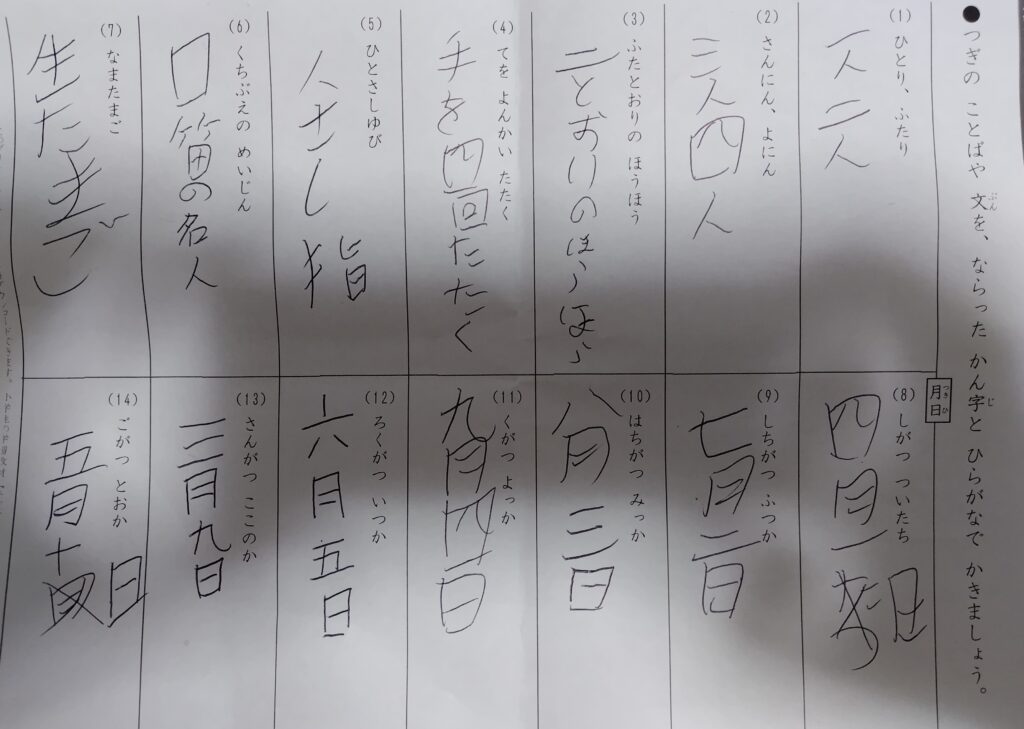 ●つぎの ことばや 文を、ならった かん字と ひらがなで かきましょう。
ぶん
じ
(1) ひとり、ふたり
一人二人
(2) さんにん、よにん
三人四人
(3) ふたとおりの ほうほう
二とおりのほうほう
(4) てを よんかい たたく
手を四回たたく
(5) ひとさしゆび
人さし指
(6) くちぶえの めいじん
口笛の名人
(7) なまたまご
生たまご
月日
つきひ
(8) しがつ ついたち
四月一日
(9) しちがつ ふつか
七月二日
(10) はちがつ みっか
八月三日
(11) くがつ よっか
九月四日
(12) ろくがつ いつか
六月五日
(13) さんがつ ここのか
三月九日
(14) ごがつ とおか
五月十日